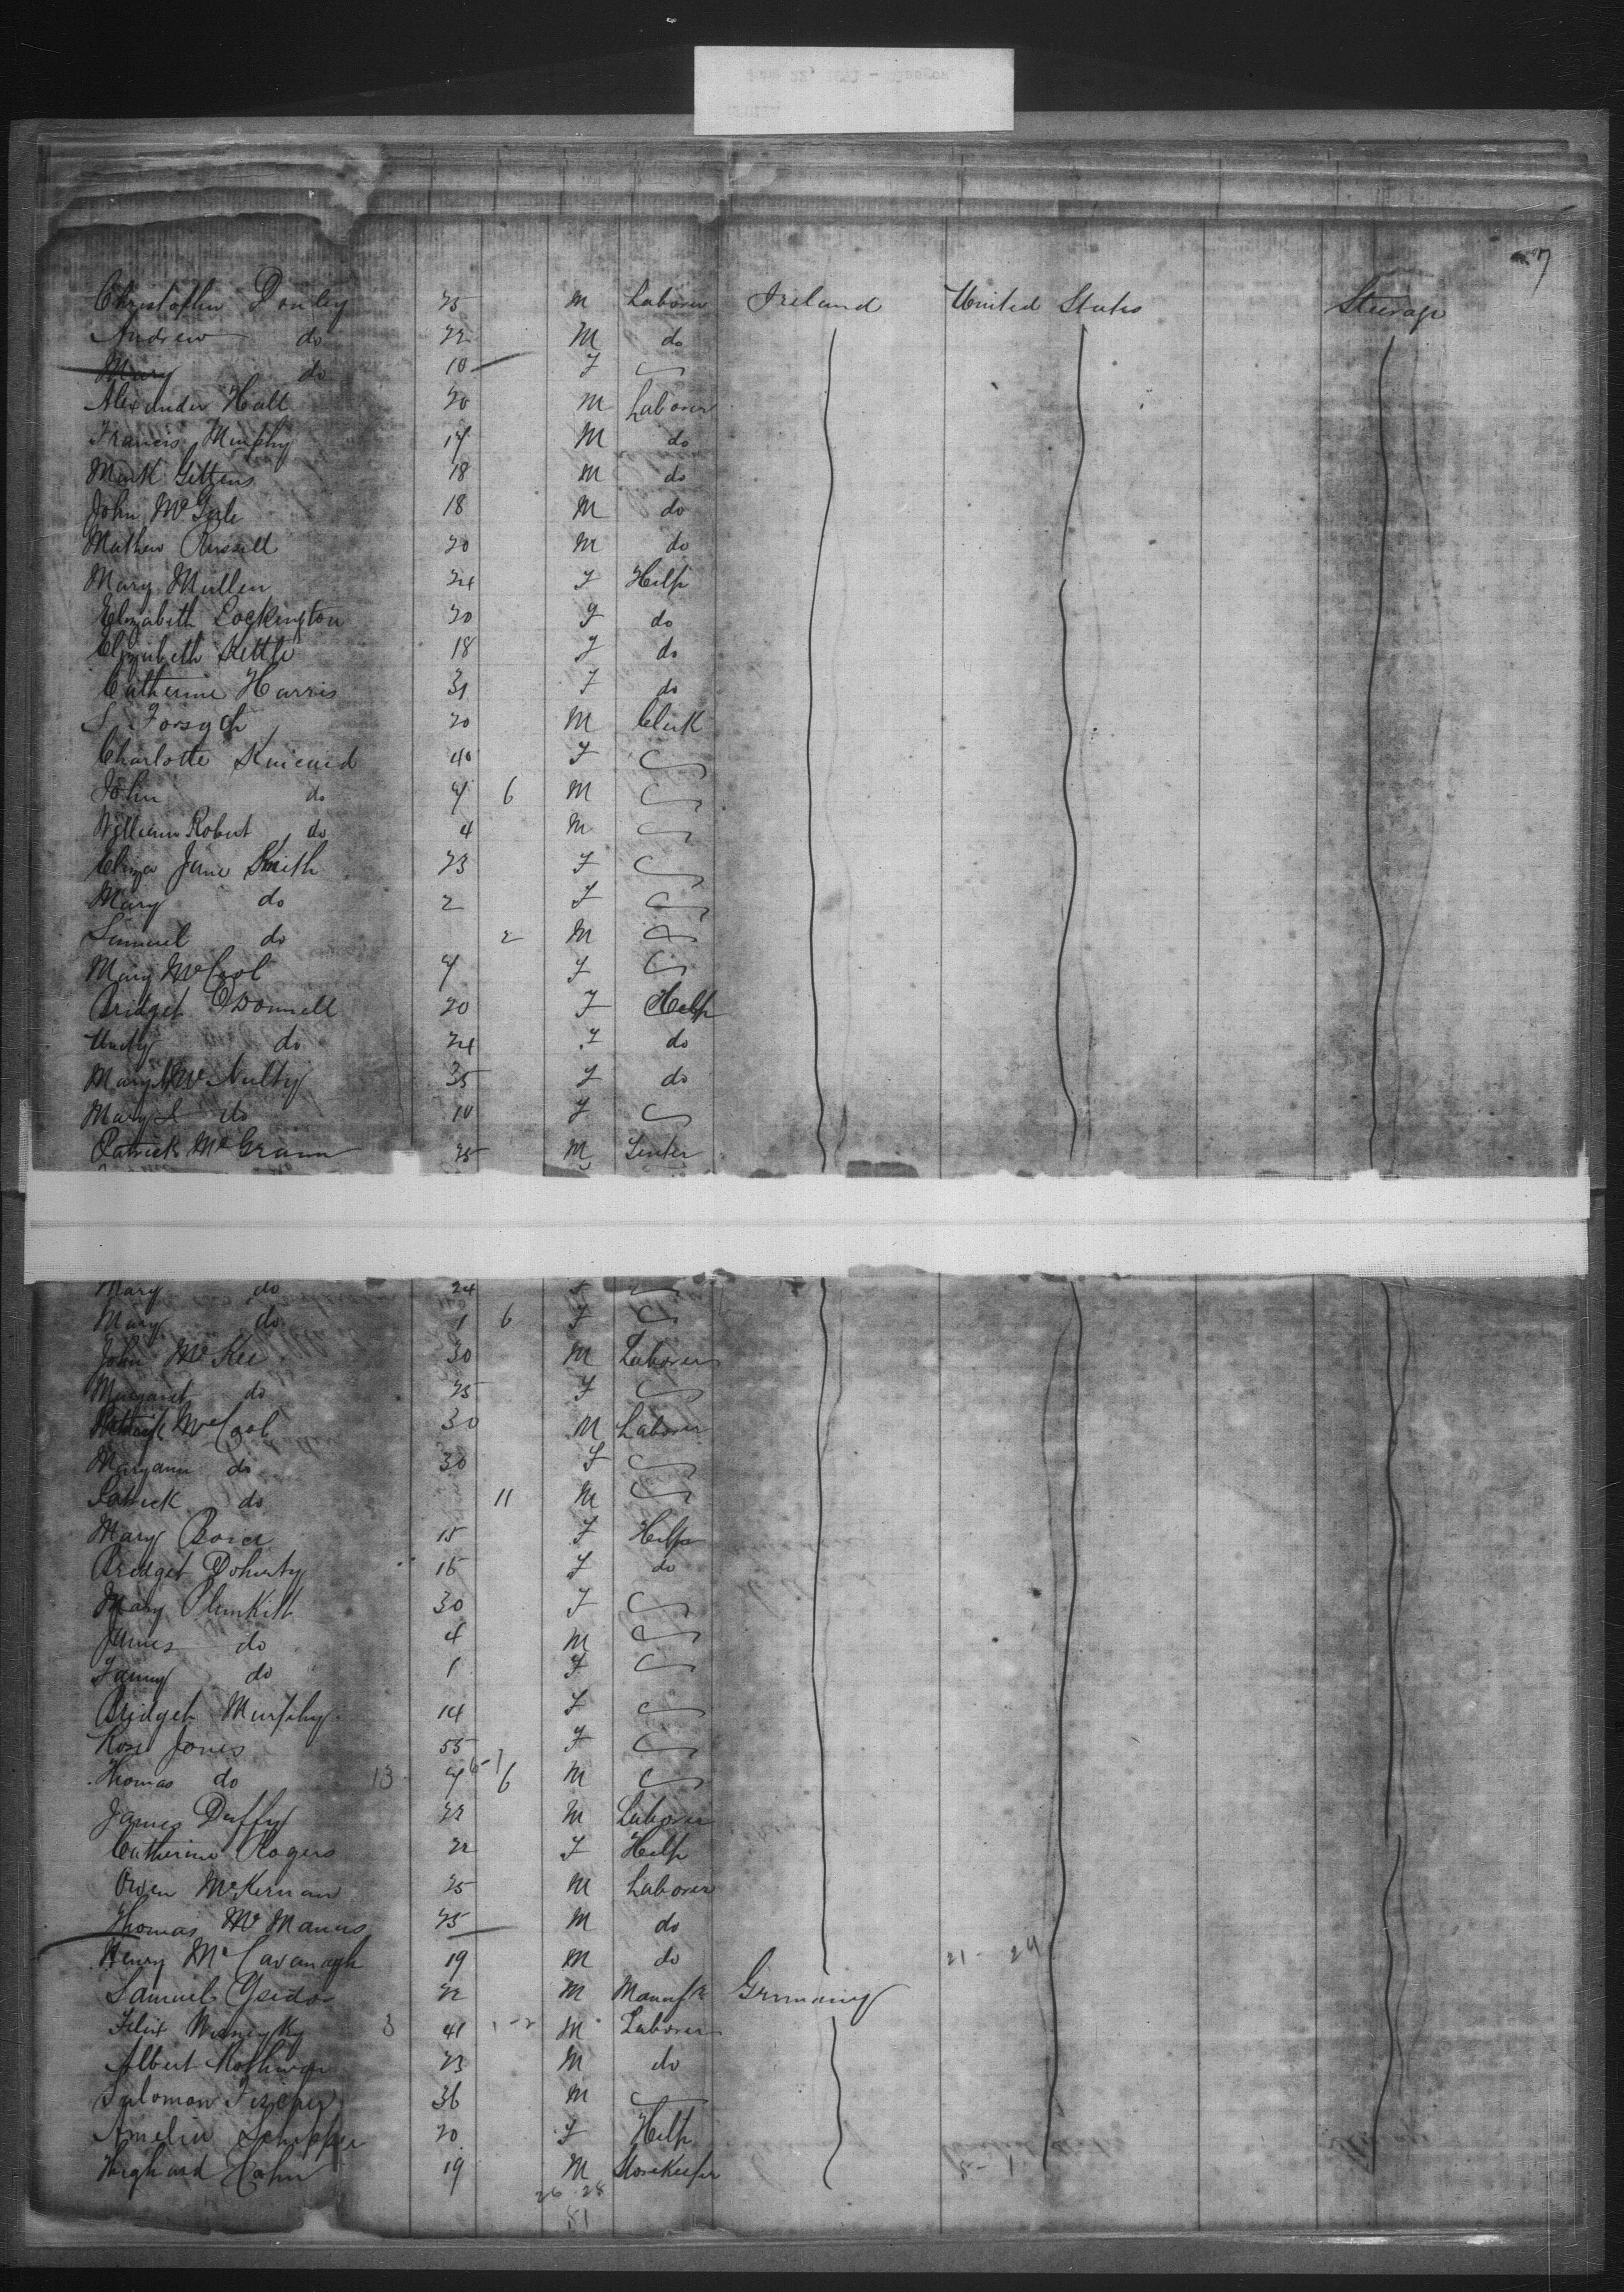 7
Christopher Donley 25 M Laborer Ireland United States Steerage
Andrew do 22 M do
Mary do 10 F
Alexander Hall 20 M Laborer
Francis Murphy 17 M do
Mark Gettens 18 M do
John McGirle 18 M do
Mathew Russell 20 M do
Mary Mullen 24 F Help
Elizabeth Lockington 20 F do
Elizabeth Kettle 18 F do
Catherine Harris 31 F do
S. Forsyth 20 M Clerk
Charlotte Kincaid 40 F
John do 7 6 M
William Robert do 4 M
Eliza Jane Smith 23 F
Mary do 2 F
Samuel do 2 M
Mary McCool 7 F
Bridget ODonnell 20 F Help
Unity do 24 F do
Mary McNulty 35 F do
Mary do 10 F
Patrick McGrann 25 M
Mary do 24 F
Mary do 1 6 F
John McKee 30 M Laborer
Margaret do 25 F
McCool 30 M Laborer
Maryann do 30 F
Patrick do 11 M
Mary 15 F Help
Bridget Doherty 16 F do
Mary Plunkitt 30 F
James do 4 M
Fanny do 1 F
Bridget Murphy 14 F
Rose Jones 55 F
Thomas do 13 7 6 M
James Duffy 22 M Laborer
Catherine Rogers 22 F Help
Owen McKernan 25 M Laborer
Thomas McManus 25 M do
Henry McCavanagh 19 M do 21 - 24
Samuel 22 M Germany
Felix 3 41 M Laborer
Albert 23 M do
Salomon 36 M
Amelia 20 F Help
Cohn 19 M Storekeeper
26 28
81